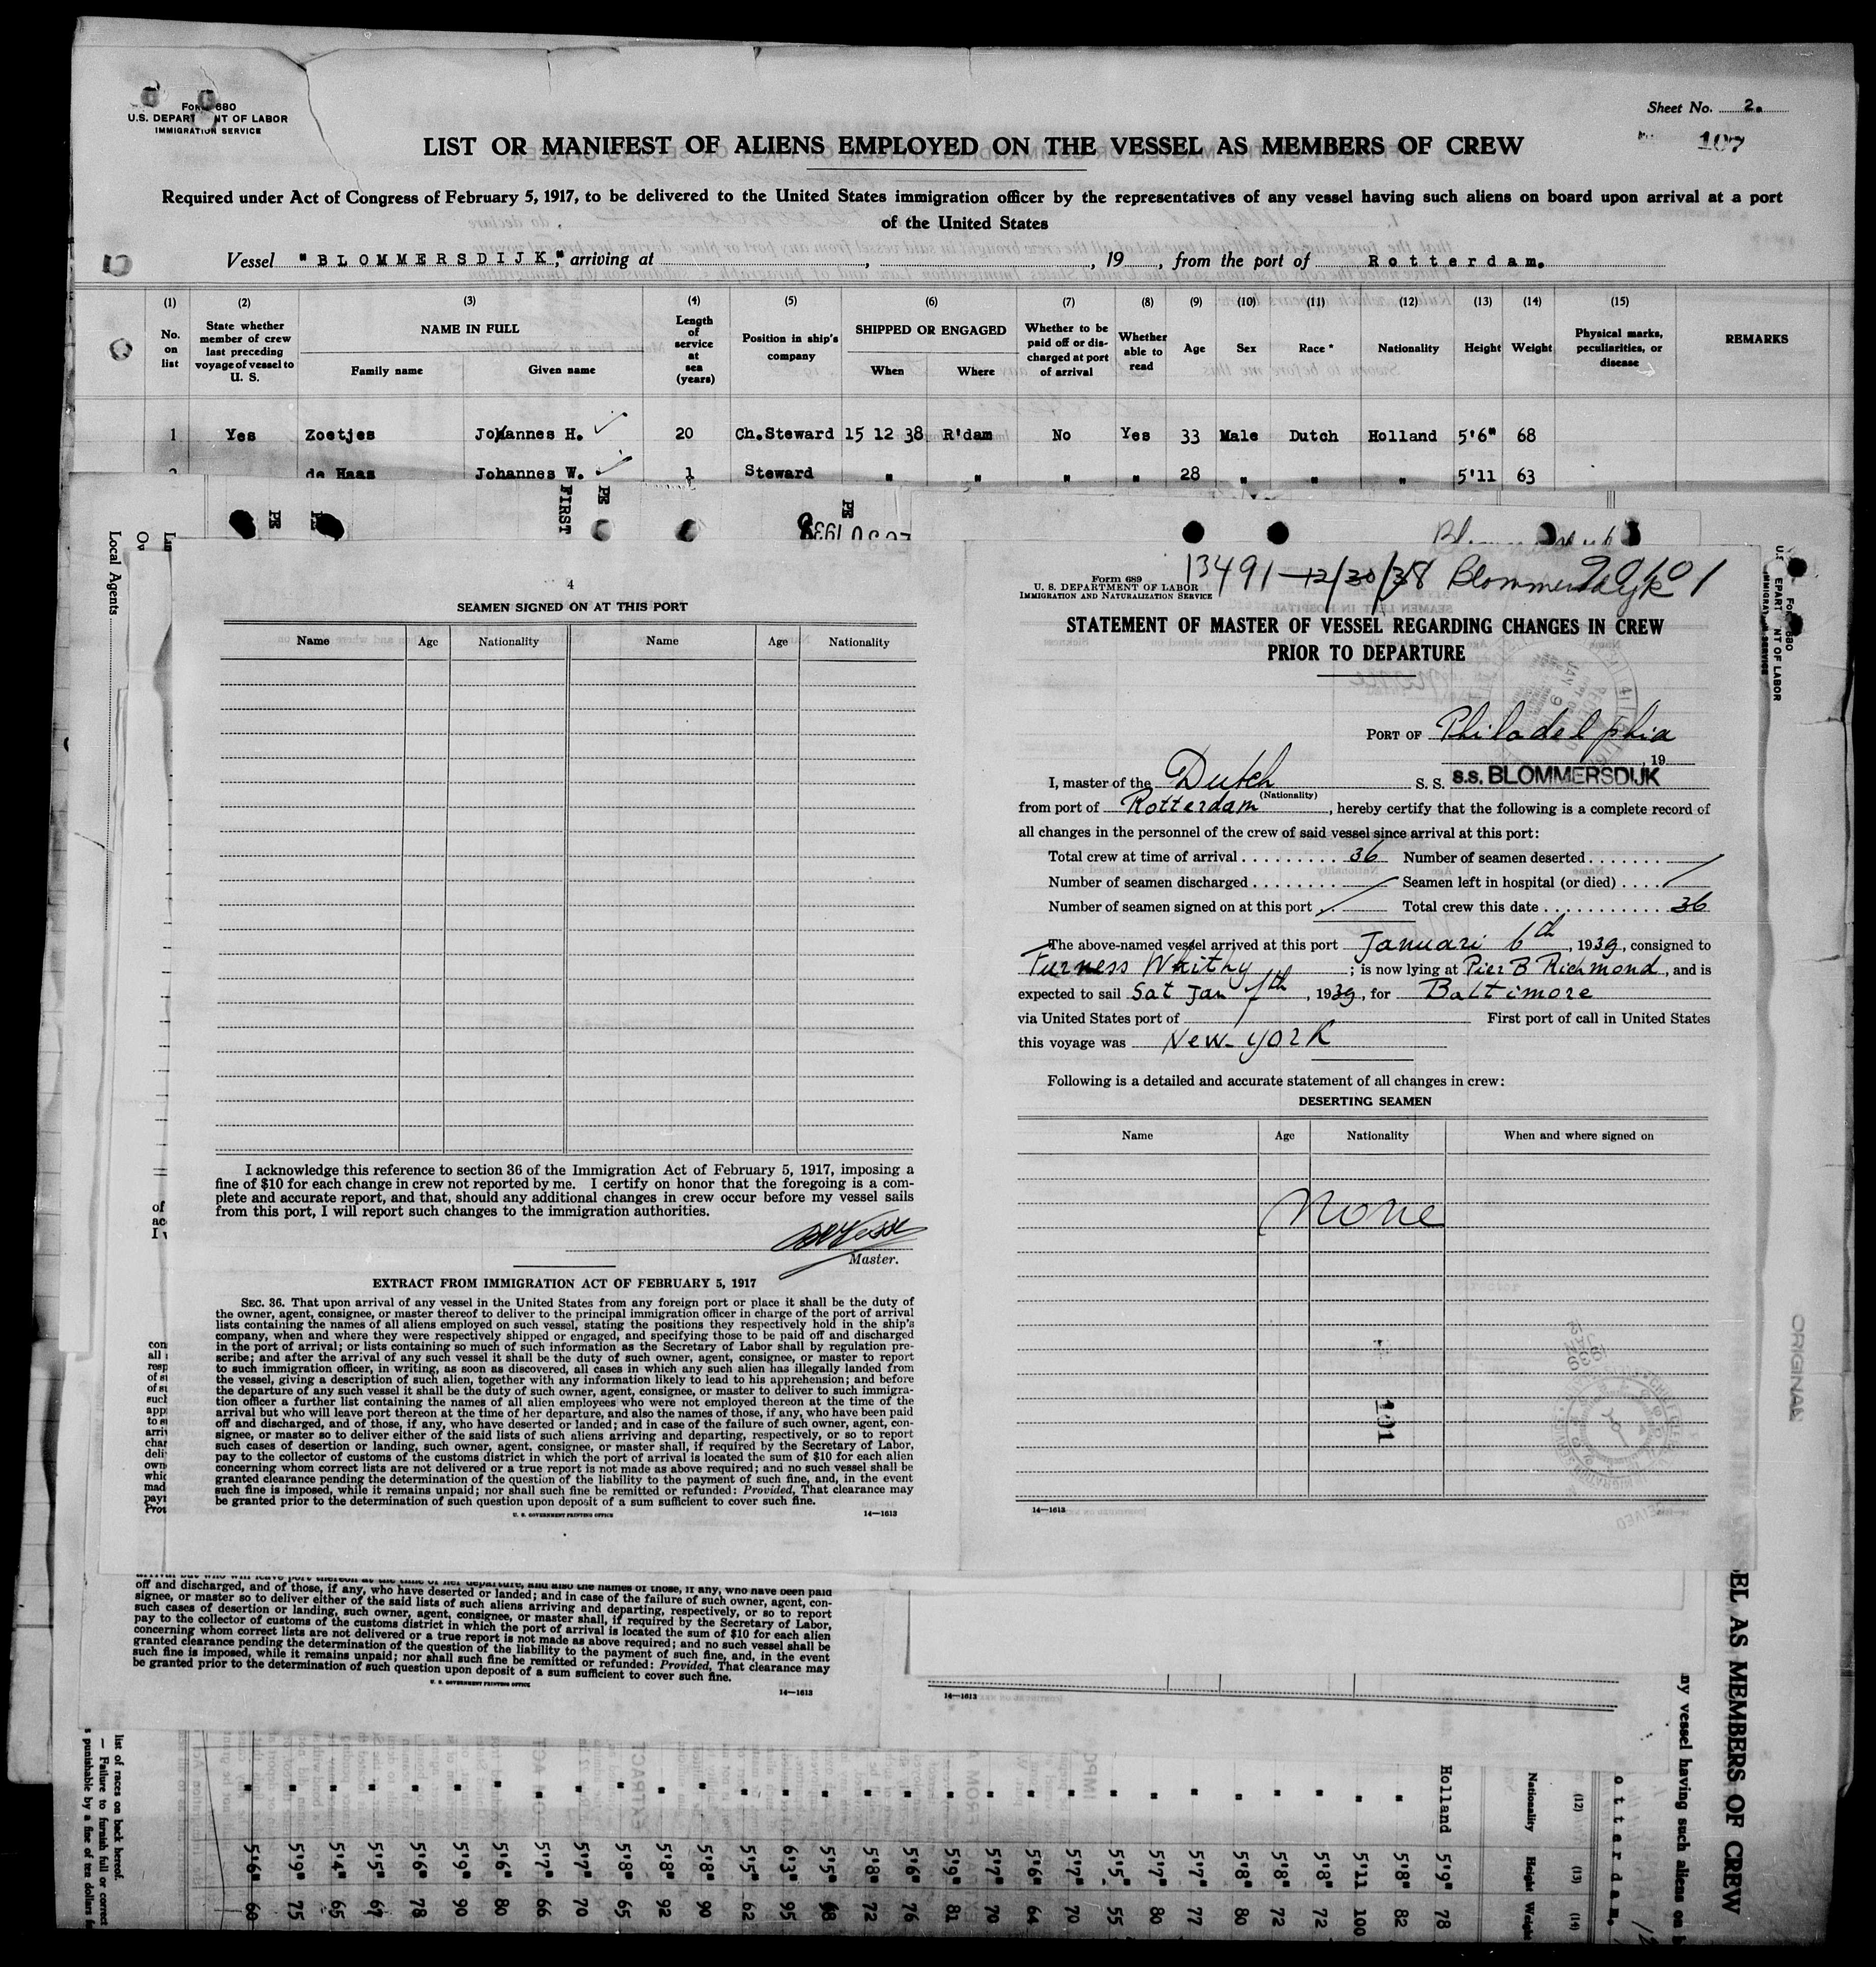 Form 680
U.S. DEPARTMENT OF LABOR
IMMIGRATION SERVICE
Sheet No. 2.
107
LIST OR MANIFEST OF ALIENS EMPLOYED ON THE VESSEL AS MEMBERS OF CREW
Required under Act of Congress of February 5, 1917, to be delivered to the United States immigration officer by the representatives of any vessel having such aliens on board upon arrival at a port
of the United States
Vessel "BLOMMERSDIJK," arriving at , , 19 , from the port of Rotterdam.
(1) (2) (3) (4) (5) (6) (7) (8) (9) (10) (11) (12) (13) (14) (15)
No. on list State whether member of crew last preceding voyage of vessel to U. S. NAME IN FULL Family name Given name Length of service at sea (years) Position in ship's company SHIPPED OR ENGAGED When Where Whether to be paid off or discharged at port of arrival Whether able to read Age Sex Race * Nationality Height Weight Physical marks, peculiarities, or disease REMARKS
1 Yes Zoetjes Johannes H. 20 Ch.Steward 15 12 38 R'dam No Yes 33 Male Dutch Holland 5'6" 68
de Haas Johannes W. 1 Steward " " " " 28 " " " 5'11 63
Local Agents
FIRST
PE
4
SEAMEN SIGNED ON AT THIS PORT
Name Age Nationality Name Age Nationality
I acknowledge this reference to section 36 of the Immigration Act of February 5, 1917, imposing a
fine of $10 for each change in crew not reported by me. I certify on honor that the foregoing is a com-
plete and accurate report, and that, should any additional changes in crew occur before my vessel sails
from this port, I will report such changes to the immigration authorities.
Master.
EXTRACT FROM IMMIGRATION ACT OF FEBRUARY 5, 1917
SEC. 36. That upon arrival of any vessel in the United States from any foreign port or place it shall be the duty of
the owner, agent, consignee, or master thereof to deliver to the principal immigration officer in charge of the port of arrival
lists containing the names of all aliens employed on such vessel, stating the positions they respectively hold in the ship's
company, when and where they were respectively shipped or engaged, and specifying those to be paid off and discharged
in the port of arrival; or lists containing so much of such information as the Secretary of Labor shall by regulation pre-
scribe; and after the arrival of any such vessel it shall be the duty of such owner, agent, consignee, or master to report
to such immigration officer, in writing, as soon as discovered, all cases in which any such alien has illegally landed from
the vessel, giving a description of such alien, together with any information likely to lead to his apprehension; and before
the departure of any such vessel it shall be the duty of such owner, agent, consignee, or master to deliver to such immigra-
tion officer a further list containing the names of all alien employees who were not employed thereon at the time of the
arrival but who will leave port thereon at the time of her departure, and also the names of those, if any, who have been paid
off and discharged, and of those, if any, who have deserted or landed; and in case of the failure of such owner, agent, con-
signee, or master so to deliver either of the said lists of such aliens arriving and departing, respectively, or so to report
such cases of desertion or landing, such owner, agent, consignee, or master shall, if required by the Secretary of Labor,
pay to the collector of customs of the customs district in which the port of arrival is located the sum of $10 for each alien
concerning whom correct lists are not delivered or a true report is not made as above required; and no such vessel shall be
granted clearance pending the determination of the question of the liability to the payment of such fine, and, in the event
such fine is imposed, while it remains unpaid; nor shall such fine be remitted or refunded: Provided, That clearance may
be granted prior to the determination of such question upon deposit of a sum sufficient to cover such fine.
U. S. GOVERNMENT PRINTING OFFICE 14—1613
13491 12/30/38 Blommersdyk
Form 689
U. S. DEPARTMENT OF LABOR
IMMIGRATION AND NATURALIZATION SERVICE
STATEMENT OF MASTER OF VESSEL REGARDING CHANGES IN CREW
PRIOR TO DEPARTURE
PORT OF Philadelphia
, 19
I, master of the Dutch S. S. S.S. BLOMMERSDIJK
(Nationality)
from port of Rotterdam, hereby certify that the following is a complete record of
all changes in the personnel of the crew of said vessel since arrival at this port:
Total crew at time of arrival 36 Number of seamen deserted
Number of seamen discharged Seamen left in hospital (or died)
Number of seamen signed on at this port Total crew this date 36
The above-named vessel arrived at this port Januari 6d, 1939, consigned to
Furness Whithy ; is now lying at Pier B Richmond, and is
expected to sail Sat Jan 7th, 1939, for Baltimore
via United States port of First port of call in United States
this voyage was New-York
Following is a detailed and accurate statement of all changes in crew:
DESERTING SEAMEN
Name Age Nationality When and where signed on
None
101
14—1613
ORIGINAL
off and discharged, and of those, if any, who have deserted or landed; and in case of the failure of such owner, agent, con-
signee, or master so to deliver either of the said lists of such aliens arriving and departing, respectively, or so to report
such cases of desertion or landing, such owner, agent, consignee, or master shall, if required by the Secretary of Labor,
pay to the collector of customs of the customs district in which the port of arrival is located the sum of $10 for each alien
concerning whom correct lists are not delivered or a true report is not made as above required; and no such vessel shall be
granted clearance pending the determination of the question of the liability to the payment of such fine, and, in the event
such fine is imposed, while it remains unpaid; nor shall such fine be remitted or refunded: Provided, That clearance may
be granted prior to the determination of such question upon deposit of a sum sufficient to cover such fine.
U. S. GOVERNMENT PRINTING OFFICE 14—1613
14—1613
EL AS MEMBERS OF CREW
ny vessel having such aliens on
otterdam.
(12) (13) (14)
Nationality Height Weight
Holland 5'9" 78
" 5'8" 82
" 5'11 100
" 5'8" 72
" 5'8" 72
" 5'8" 80
" 5'7" 77
" 5'7" 80
" 5'5" 55
" 5'7" 70
" 5'6" 64
" 5'7" 70
" 5'9" 81
" 5'6" 76
" 5'8" 72
" 5'5" 68
" 6'3" 95
" 5'5" 62
" 5'8" 90
" 5'8" 92
" 5'8" 65
" 5'7" 70
" 5'7" 66
" 5'6" 80
" 5'9" 90
" 5'6" 78
" 5'5" 67
" 5'4" 65
" 5'9" 75
" 5'6" 60
list of races on back hereof.
— Failure to furnish full or correct
s punishable by a fine of ten dollars